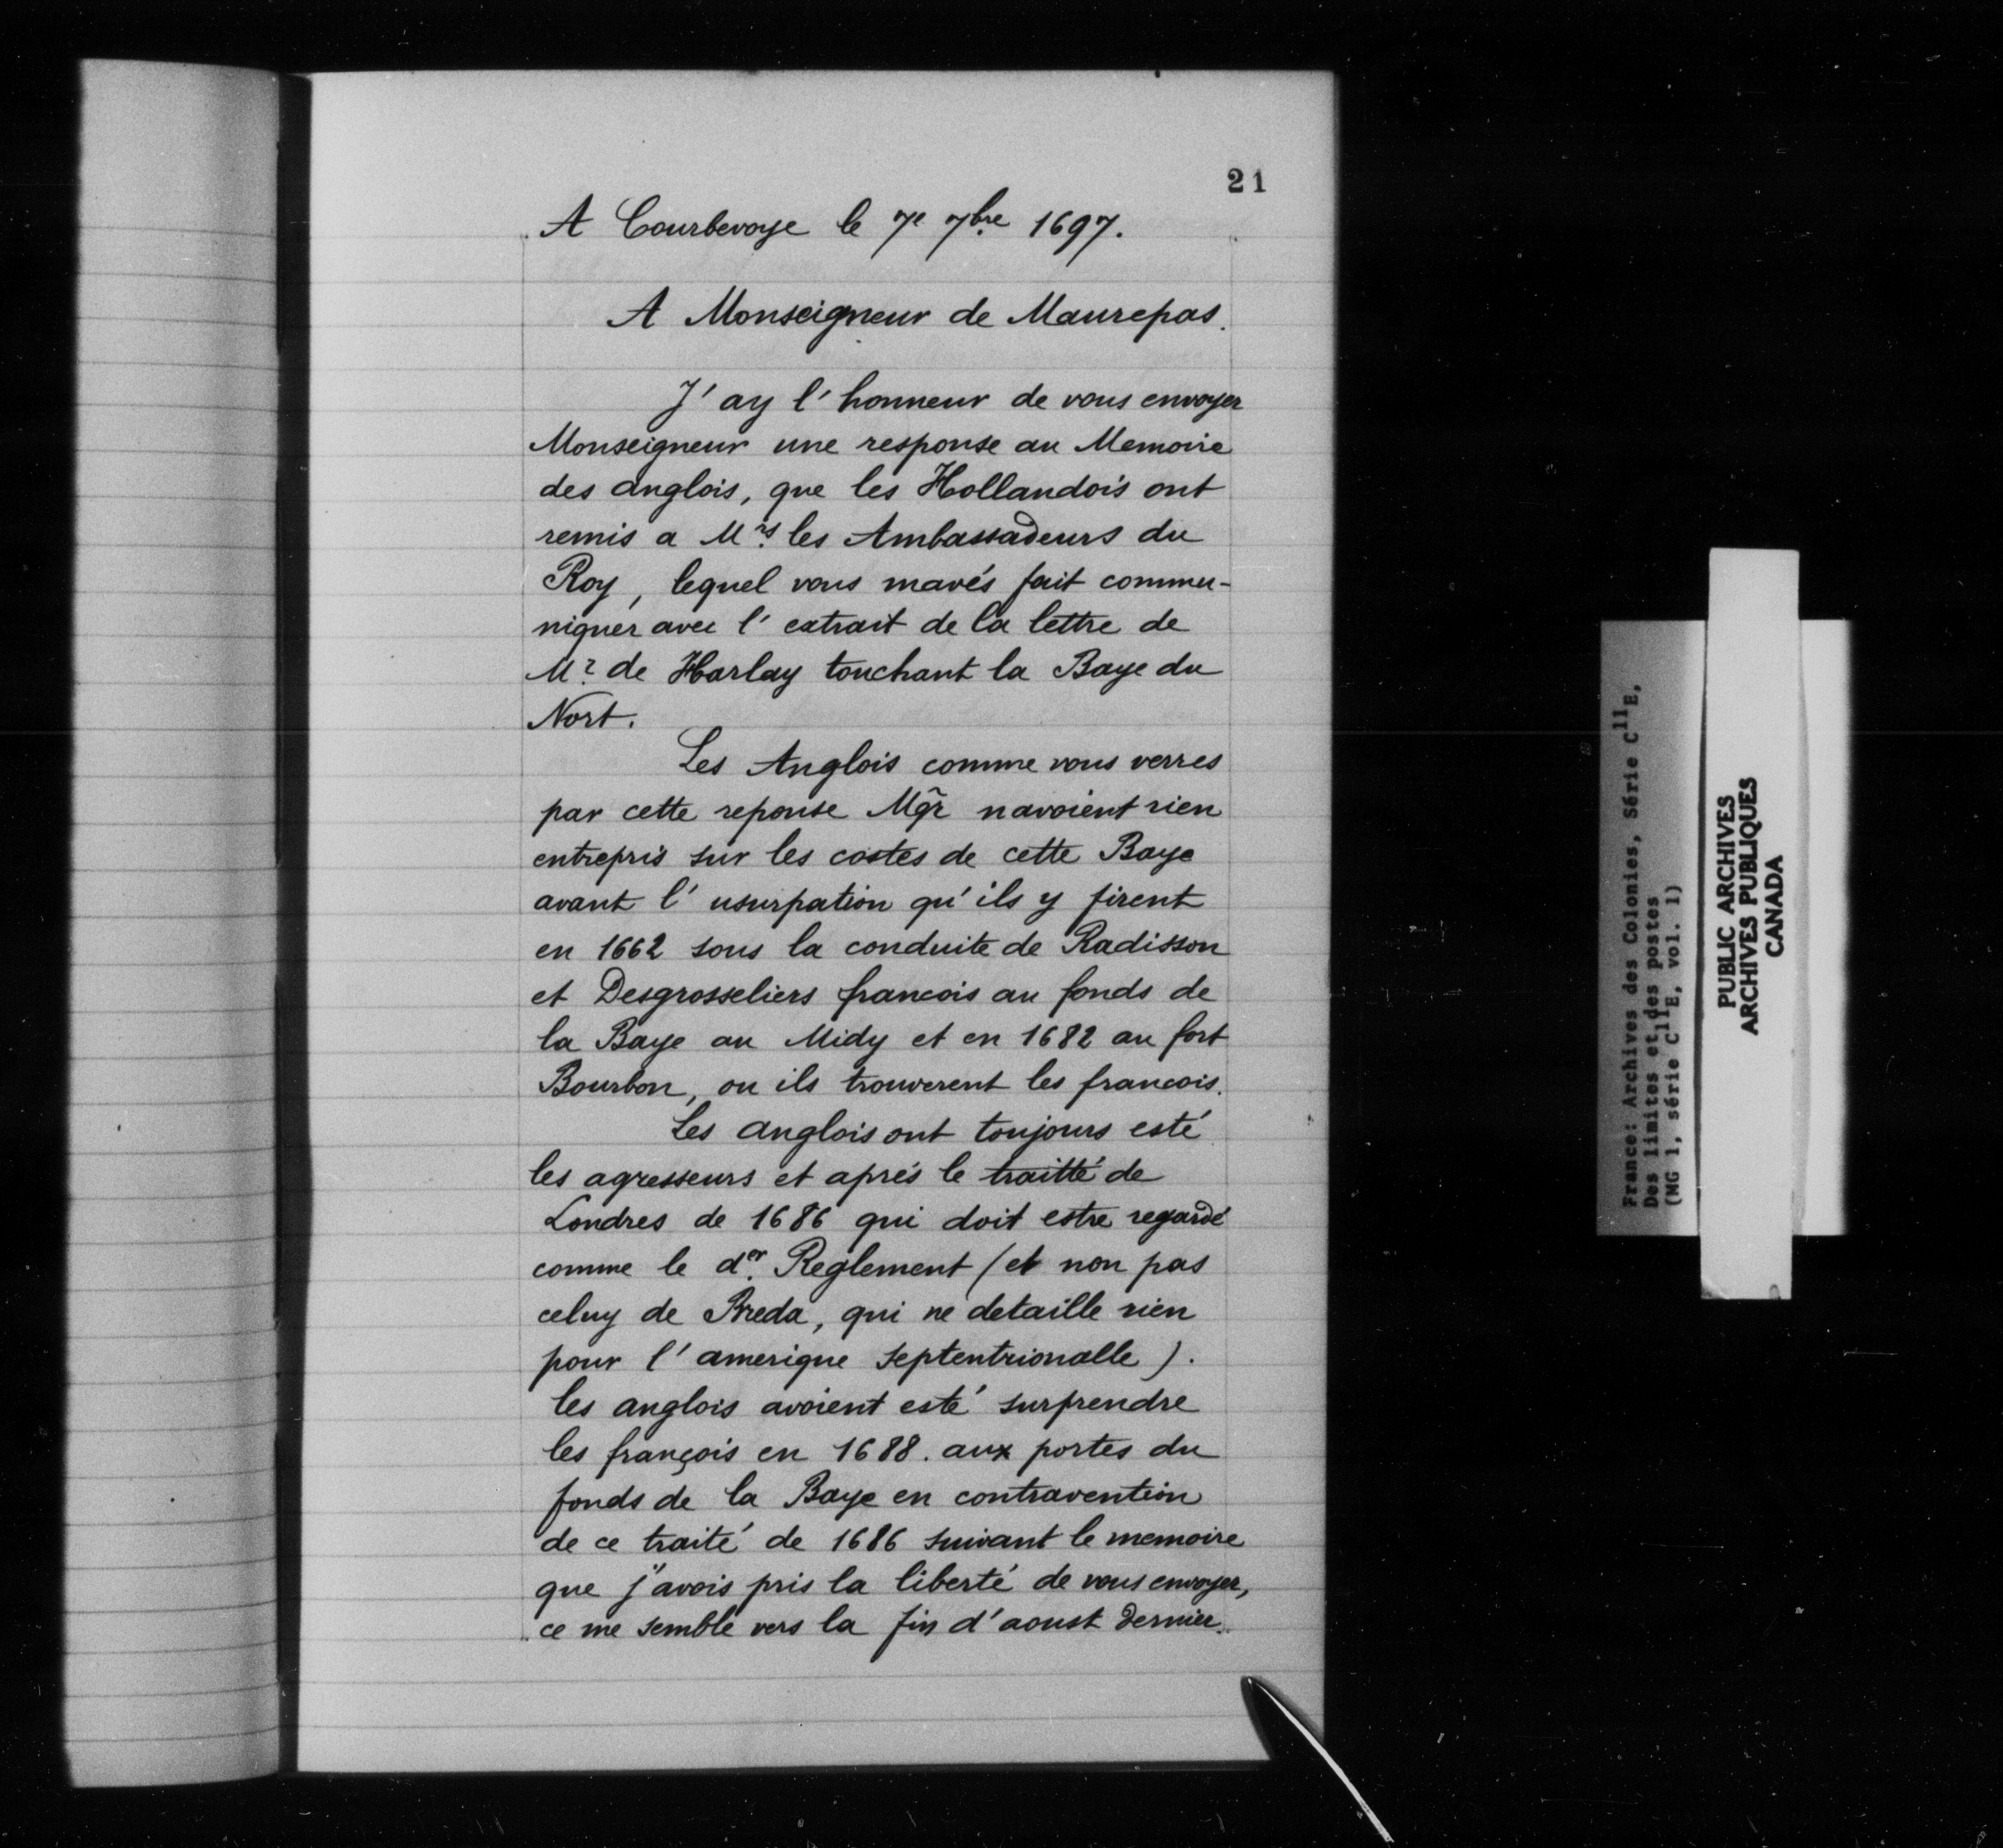 21
A Courbevoye le 7e 7bre 1697.
A Monseigneur de Maurepas.
J'ay l'honneur de vous envoyer
Monseigneur une response au Memoire
des anglois, que les Hollandois ont
remis a Mrs. les Ambassadeurs du
Roy, lequel vous mavés fait commu-
niquer avec l'extrait de la lettre de
Mr. de Harlay touchant la Baye du
Nort.
Les Anglois comme vous verres
par cette reponse Mgr̃ navoient rien
entrepris sur les costes de cette Baye
avant l'usurpation qu'ils y firent
en 1662 sous la conduite de Radisson
et Desgrosseliers francois au fonds de
la Baye au Midy et en 1682 au fort
Bourbon, ou ils trouverent les francois.
Les anglois ont toujours esté
les agresseurs et aprés le traitté de
Londres de 1686 qui doit estre regardé
comme le der. Reglement (et non pas
celuy de Breda, qui ne detaille rien
pour l'amerique septentrionalle).
les anglois avoient esté surprendre
les françois en 1688. aux portes du
fonds de la Baye en contravention
de ce traité de 1686 suivant le memoire
que j'avois pris la liberté de vous envoyer,
ce me semble vers la fin d'aoust dernier.
France: Archives des Colonies, Série C11E,
Des limites et des postes
(MG 1, série C11E, vol. 1)
PUBLIC ARCHIVES
ARCHIVES PUBLIQUES
CANADA